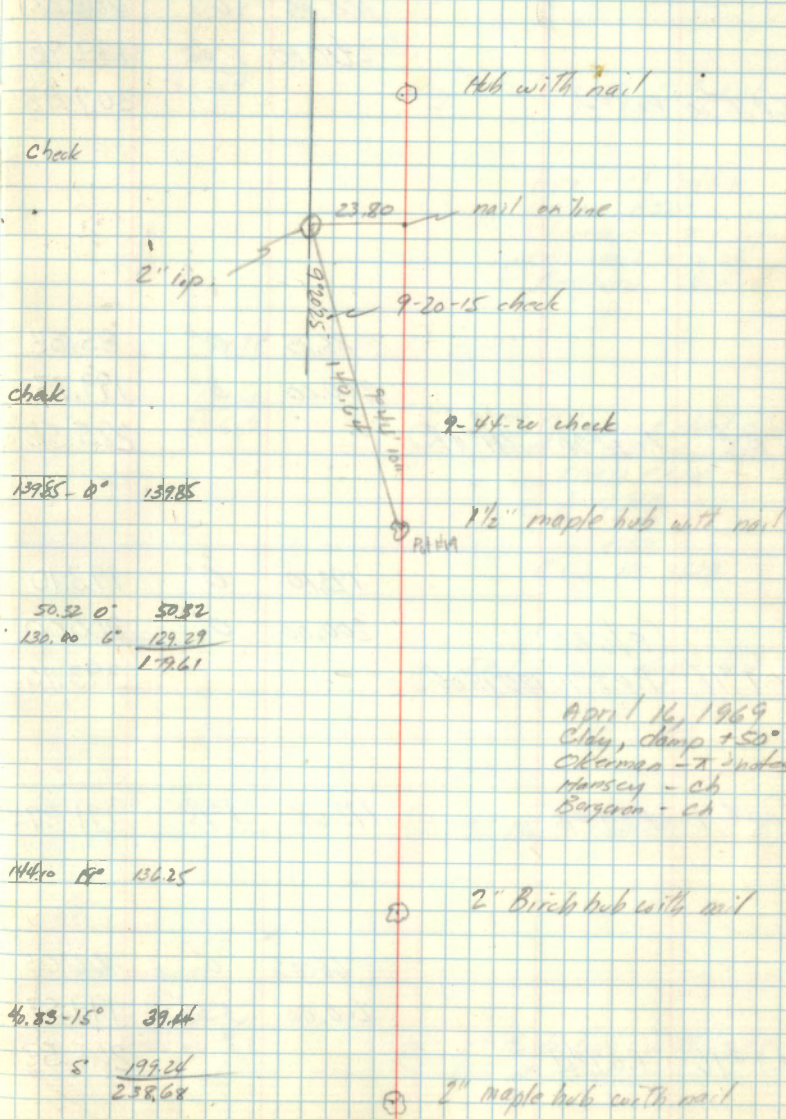 Hub with nail
check
23.80 nail on line
2" i.p.
9°20'25"
9-20-15 check
140.64
9°44'10"
check
9-44-20 check
139.85 - 0° 139.85
1 1/2" maple hub with nail
50.32 0° 50.32
130.00 6° 129.29
179.61
April 16, 1969
Cldy, damp +50°
Okerman - π & notes
Hansey - ch
Bergeron - ch
144.10 19° 136.25
2" Birch hub with nail
40.83-15° 39.44
5 199.24
238.68
2" maple hub with nail